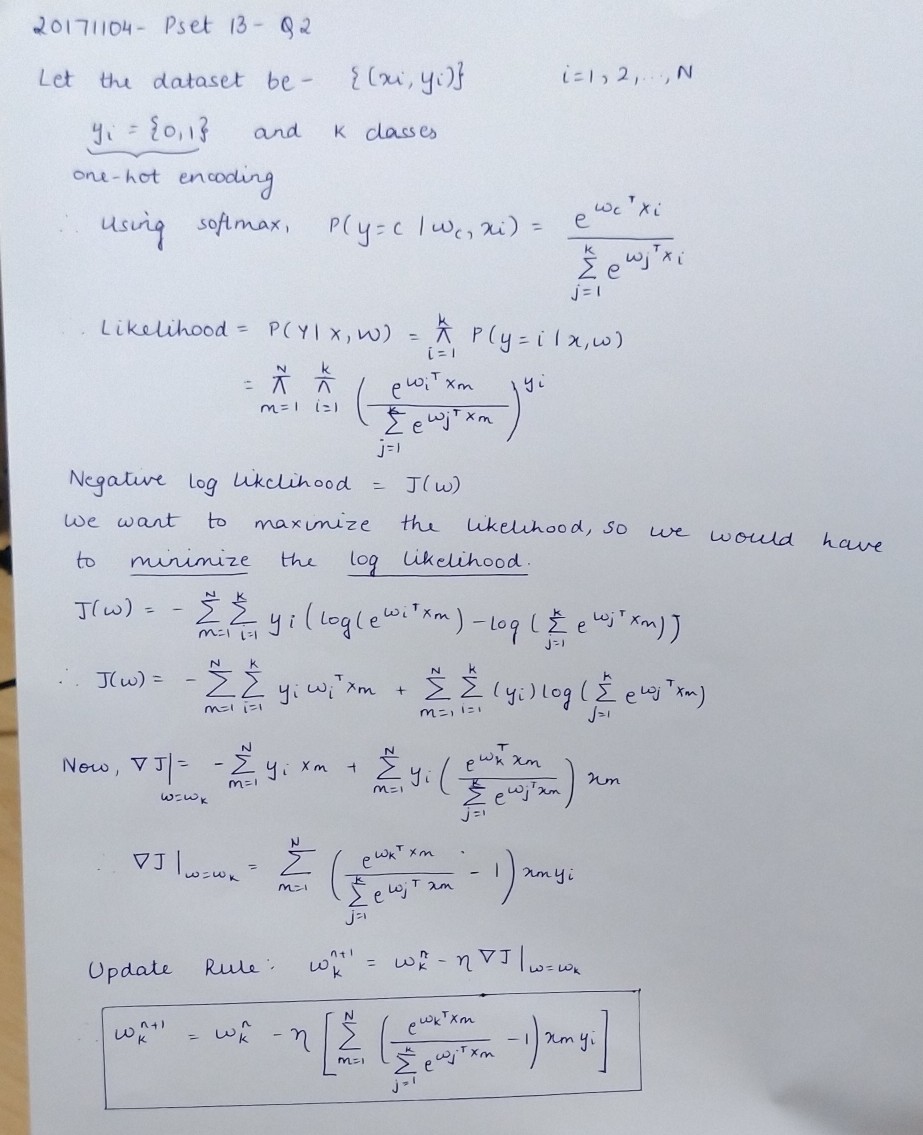 20171104 - Pset 13 - Q2
Let the dataset be - {(xi, yi)} i=1, 2, ..., N
yi = {0,1} and K classes
one-hot encoding
∴ Using softmax, P(y=c | w_c, xi) = e^{w_c^T xi} / Σ_{j=1}^{k} e^{w_j^T xi}
∴ Likelihood = P(Y | X, W) = π_{i=1}^{k} P(y=i | x, w)
= π_{m=1}^{N} π_{i=1}^{k} ( e^{w_i^T x_m} / Σ_{j=1}^{k} e^{w_j^T x_m} )^{yi}
Negative log likelihood = J(w)
We want to maximize the likelihood, so we would have
to minimize the log likelihood.
J(w) = - Σ_{m=1}^{N} Σ_{i=1}^{k} yi ( log(e^{w_i^T x_m}) - log ( Σ_{j=1}^{k} e^{w_j^T x_m}) )
∴ J(w) = - Σ_{m=1}^{N} Σ_{i=1}^{k} yi w_i^T x_m + Σ_{m=1}^{N} Σ_{i=1}^{k} (yi) log ( Σ_{j=1}^{k} e^{w_j^T x_m})
Now, ∇J|_{w=w_k} = - Σ_{m=1}^{N} yi x_m + Σ_{m=1}^{N} yi ( e^{w_k^T x_m} / Σ_{j=1}^{k} e^{w_j^T x_m} ) x_m
∴ ∇J|_{w=w_k} = Σ_{m=1}^{N} ( e^{w_k^T x_m} / Σ_{j=1}^{k} e^{w_j^T x_m} - 1 ) x_m yi
Update Rule: w_k^{n+1} = w_k^n - η ∇J|_{w=w_k}
w_k^{n+1} = w_k^n - η [ Σ_{m=1}^{N} ( e^{w_k^T x_m} / Σ_{j=1}^{k} e^{w_j^T x_m} - 1 ) x_m yi ]